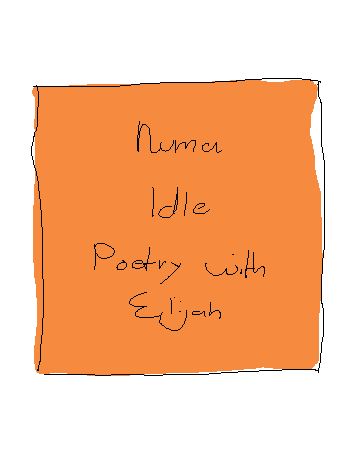 Numa
Idle
Poetry with
Elijah